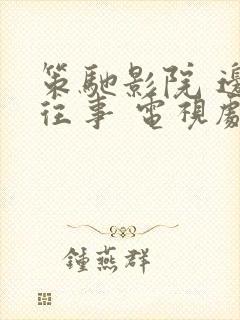 策馳影院 邊
往事 電視劇
鍾燕群